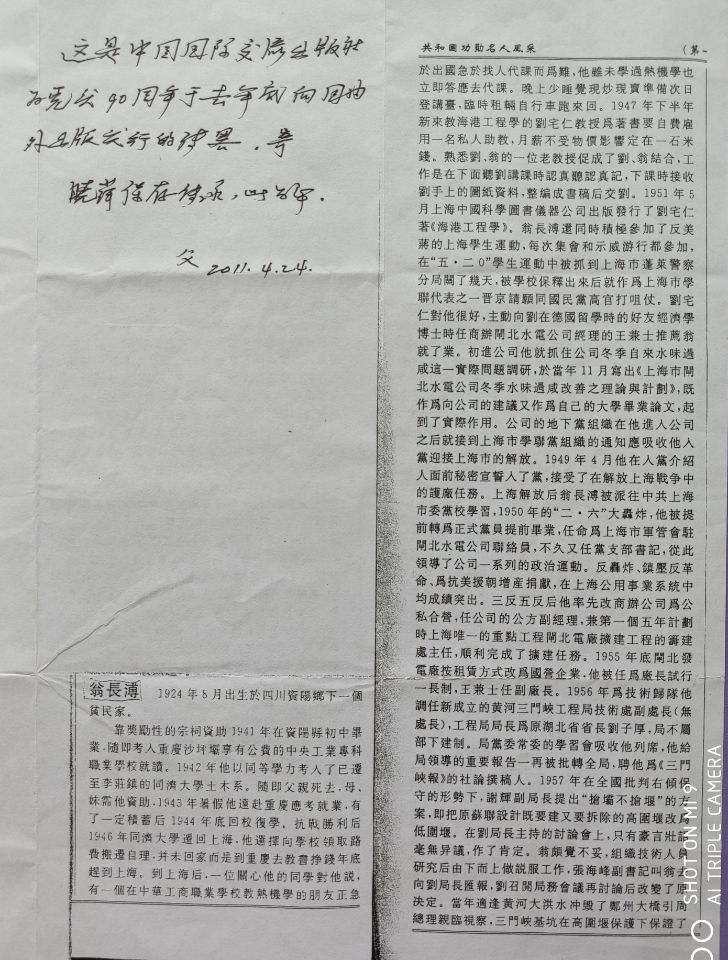 这是中国国际交流出版社
为党成90周年于去年就向国内
外出版发行的
保存传承，此
父 2011.4.24.
翁長溥 1924年8月出生於四川資陽鄉下一個
貧民家。
靠奬勵性的宗祠資助1941年在資陽縣初中畢
業,隨即考人重慶沙坪壩享有公費的中央工業專科
職業學校就讀。1942年他以同等學力考人了已遷
至李莊鎮的同濟大學土木系。隨即父親死去,母、
妹需他資助,1943年暑假他遠赴重慶應考就業,有
了一定積蓄后1944年底回校復學。抗戰勝利后
1946年同濟大學遷回上海,他選擇向學校領取路
費搬遷自理,并未回家而是到重慶去教書掙錢年底
趕到上海。到上海后,一位關心他的同學對他説,
有一個在中華工商職業學校教熱機學的朋友正急
共和國功勛名人風采
(第一
於出國急於找人代課而爲難,他雖未學過熱機學也
立即答應去代課。晚上少睡覺現炒現賣準備次日
登講臺,臨時租輛自行車跑來回。1947年下半年
新來教海港工程學的劉宅仁教授爲著書要自費雇
用一名私人助教,月薪不受物價影響定在一石米
錢。熟悉劉、翁的一位老教授促成了劉、翁結合,工
作是在下面聽劉講課時認真聽認真記,下課時接收
劉手上的圖紙資料,整編成書稿后交劉。1951年5
月上海中國科學圖書儀器公司出版發行了劉宅仁
著《海港工程學》。翁長溥還同時積極參加了反美
蔣的上海學生運動,每次集會和示威游行都參加,
在“五·二0”學生運動中被抓到上海市蓬萊警察
分局關了幾天,被學校保釋出來后就作爲上海市學
聯代表之一晋京請願同國民黨高官打咀仗。劉宅
仁對他很好,主動向劉在德國留學時的好友經濟學
博士時任商辦閘北水電公司經理的王兼士推薦翁
就了業。初進公司他就抓住公司冬季自來水味過
咸這一實際問題調研,於當年11月寫出《上海市閘
北水電公司冬季水味過咸改善之理論與計劃》,既
作爲向公司的建議又作爲自己的大學畢業論文,起
到了實際作用。公司的地下黨組織在他進人公司
之后就接到上海市學聯黨組織的通知應吸收他人
黨迎接上海市的解放。1949年4月他在人黨介紹
人面前秘密宣誓人了黨,接受了在解放上海戰争中
的護廠任務。上海解放后翁長溥被派往中共上海
市委黨校學習,1950年的“二·六”大轟炸,他被提
前轉爲正式黨員提前畢業,任命爲上海市軍管會駐
閘北水電公司聯絡員,不久又任黨支部書記,從此
領導了公司一系列的政治運動。反轟炸、鎮壓反革
命、爲抗美援朝增産捐獻,在上海公用事業系統中
均成績突出。三反五反后他率先改商辦公司爲公
私合營,任公司的公方副經理,兼第一個五年計劃
時上海唯一的重點工程閘北電廠擴建工程的籌建
處主任,順利完成了擴建任務。1955年底閘北發
電廠按租賃方式改爲國營企業,他被任爲廠長試行
一長制,王兼士任副廠長。1956年爲技術歸隊他
調任新成立的黄河三門峽工程局技術處副處長(無
處長),工程局局長爲原湖北省省長劉子厚,局不屬
部下建制。局黨委常委的學習會吸收他列席,他給
局領導的重要報告一再被批轉全局,聘他爲《三門
峽報》的社論撰稿人。1957年在全國批判右傾保
守的形勢下,謝輝副局長提出“搶壩不搶堰”的方
案,即把原蘇聯設計既要建又要拆除的高圍堰改爲
低圍堰。在劉局長主持的討論會上,只有豪言壯語
毫無异議,作了肯定。翁頗覺不妥,組織技術人員
研究后由下而上做説服工作,張海峰副書記叫翁去
向劉局長匯報,劉召開局務會議再討論后改變了原
決定。當年適逢黄河大洪水冲毁了鄭州大橋引周
總理親臨視察,三門峽基坑在高圍堰保護下保證了
SHOT ON MI 9
AI TRIPLE CAMERA